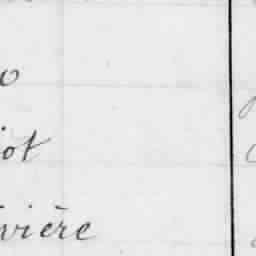 o
iot
vière